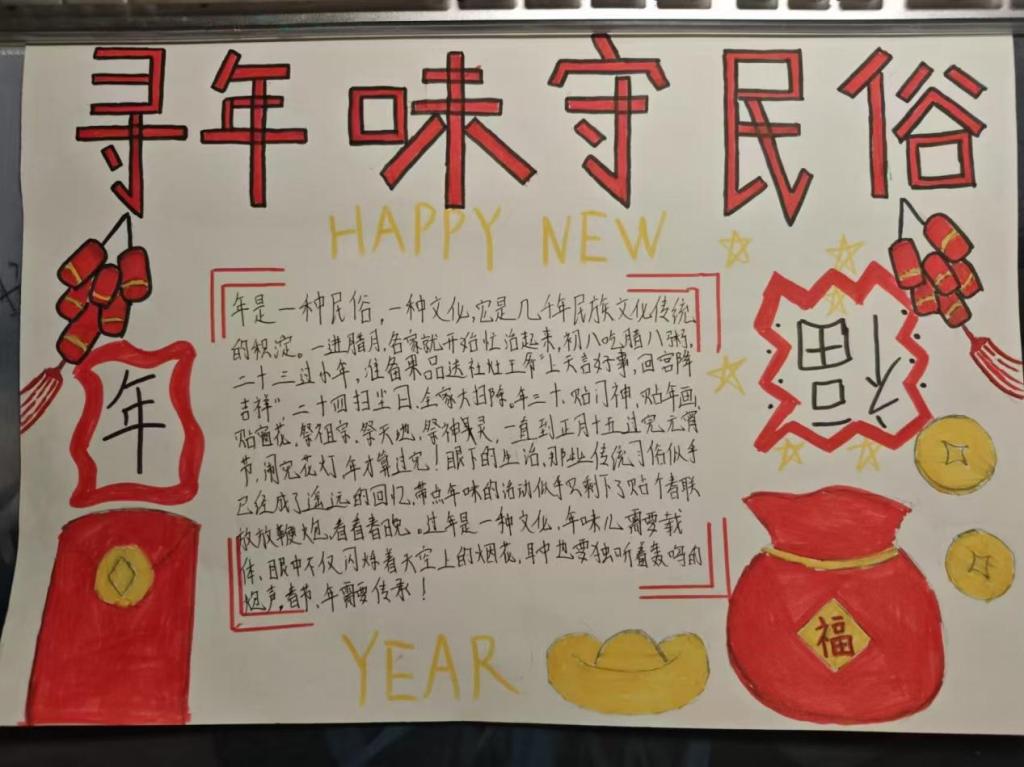 寻年味守民俗
HAPPY NEW
年是一种民俗,一种文化,它是几千年民族文化传统
的积淀。一进腊月,各家就开始忙活起来,初八吃腊八粥,
二十三过小年,准备果品送灶王爷"上天言好事,回宫降
吉祥",二十四扫尘日,全家大扫除。年三十,贴门神,贴年画,
贴窗花,祭祖宗,祭天地,祭神灵,一直到正月十五过完元宵
节,闹完花灯,年才算过完!眼下的生活,那些传统习俗似乎
已经成了遥远的回忆,带点年味的活动似乎只剩下了贴个春联
放放鞭炮,看看春晚。过年是一种文化,年味儿需要载
体,眼中不仅闪烁着天空上的烟花,耳中也要独听着轰鸣的
炮声,春节、年需要传承!
福
年
YEAR
福